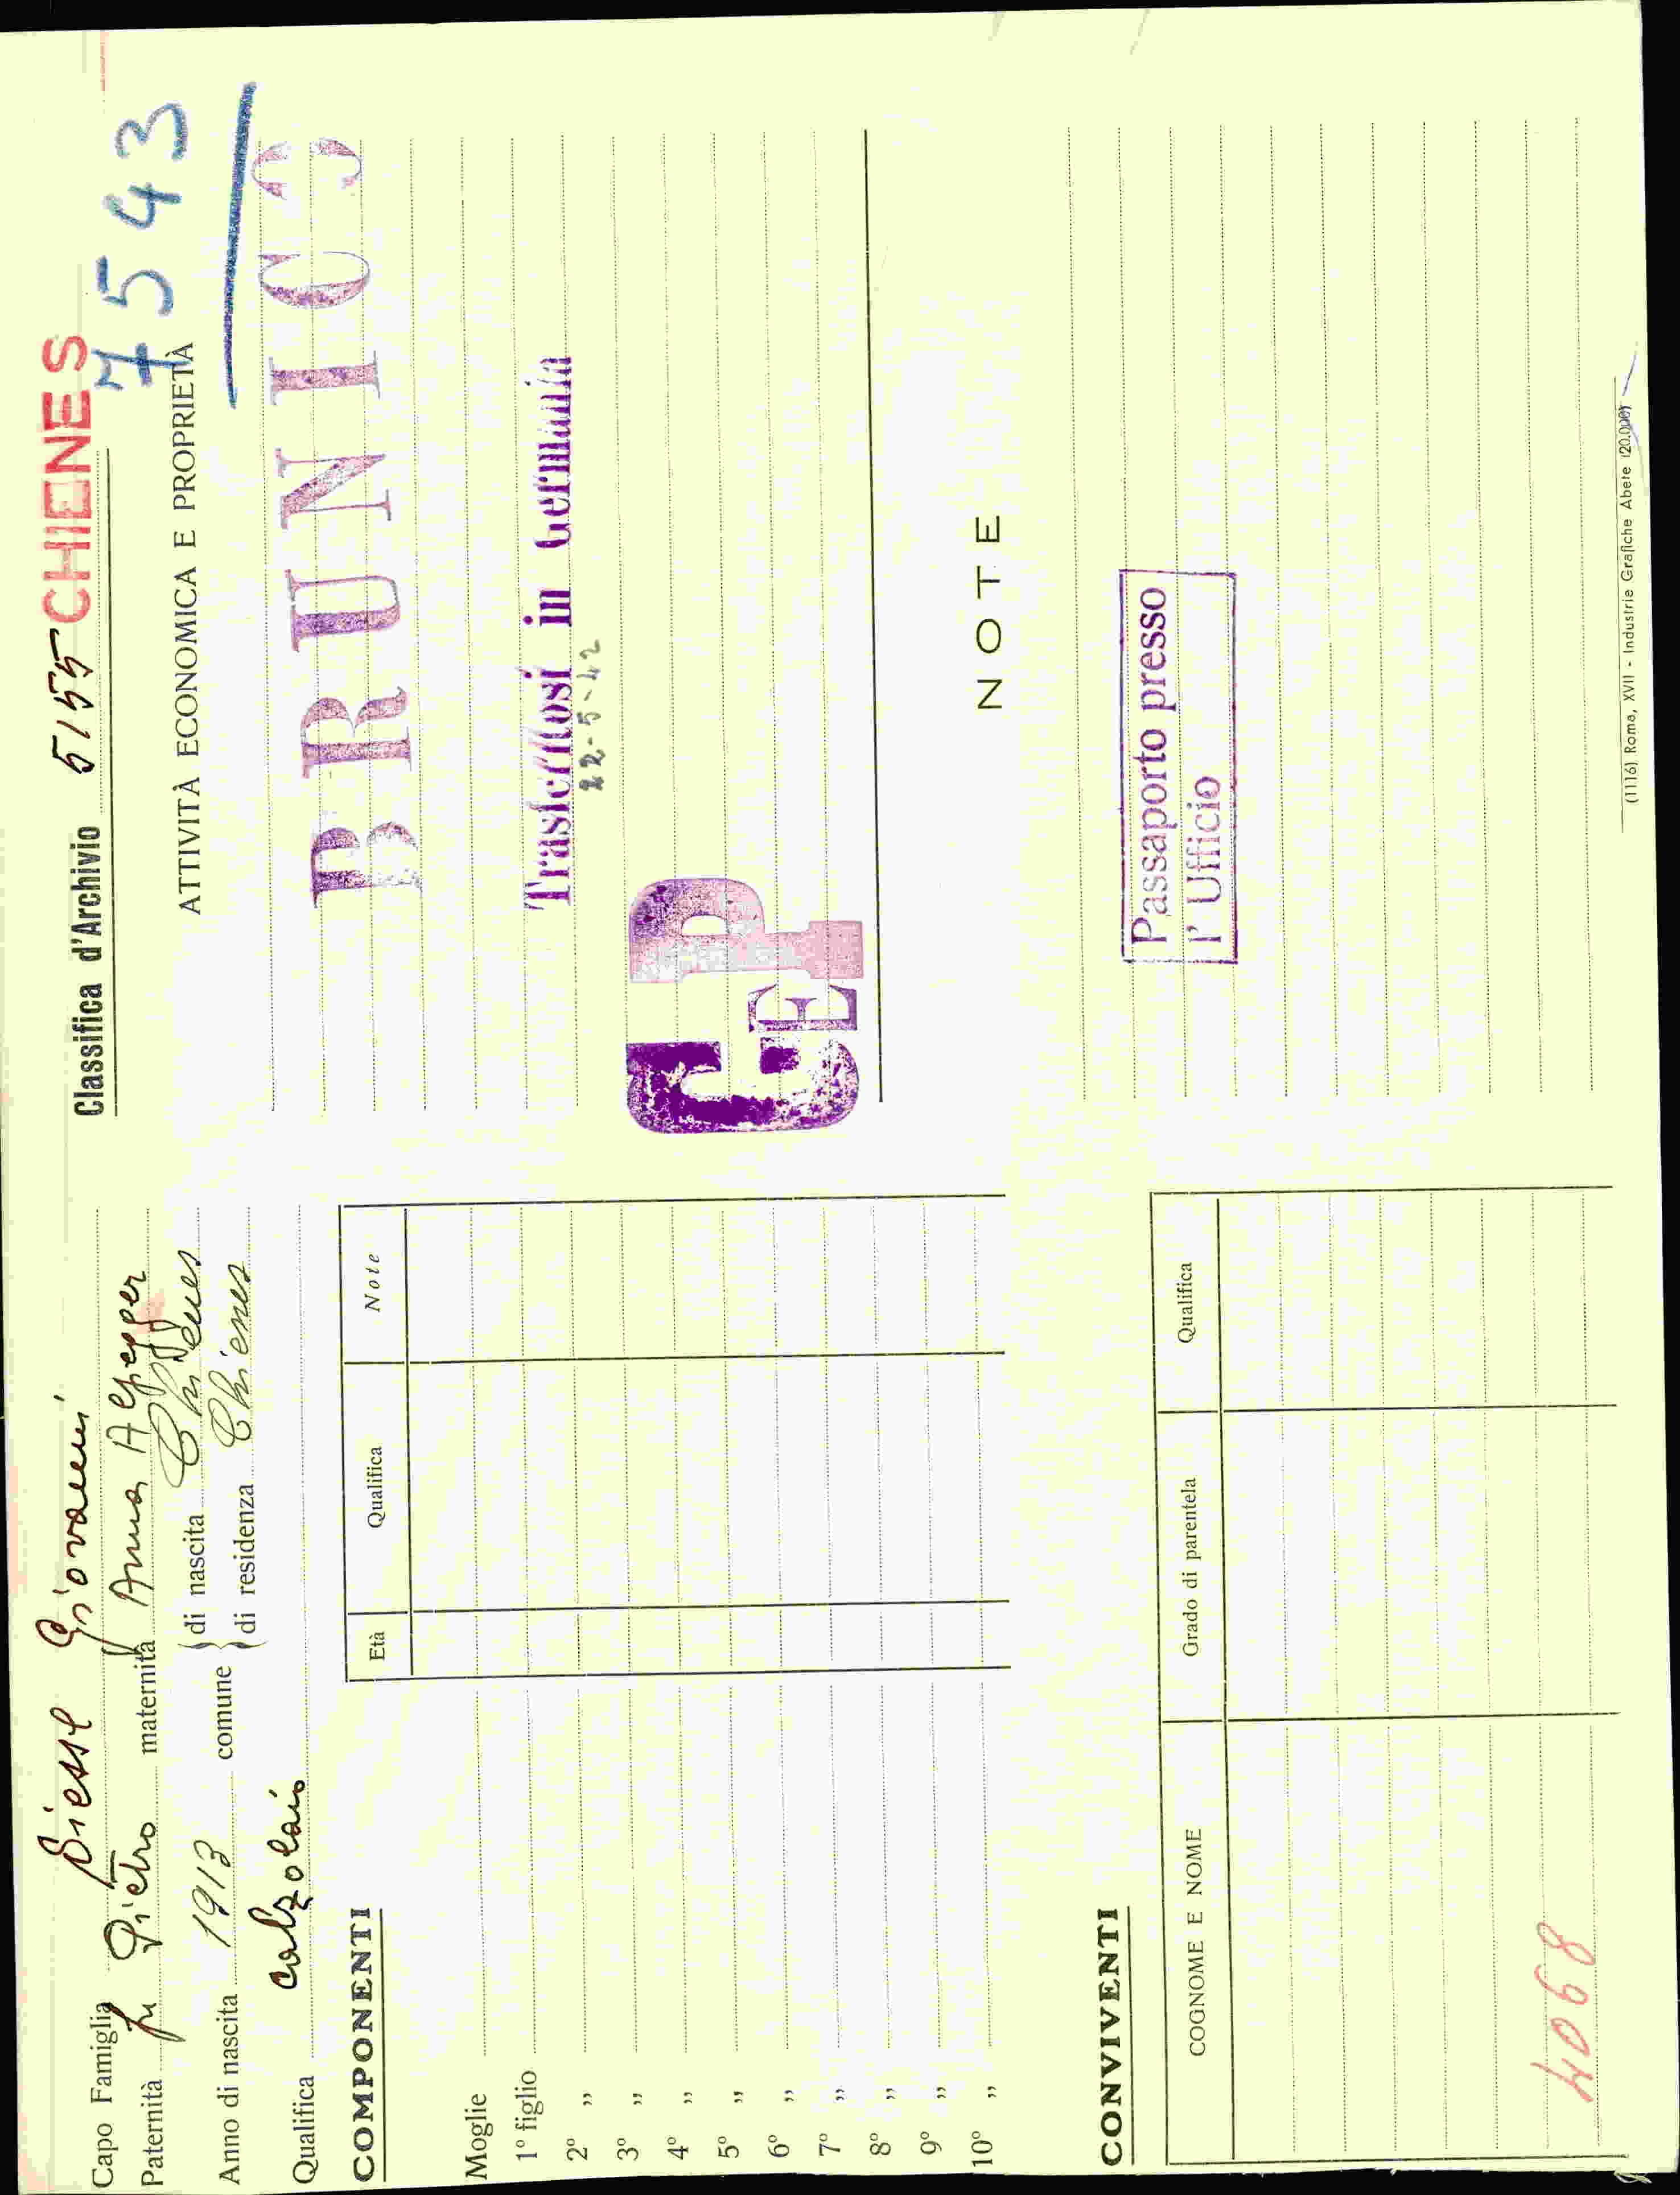 Capo Famiglia Siesse Giovanni
Paternità fu Pietro maternità Anna Alpegger
Anno di nascita 1913 comune } di nascita Chienes
} di residenza Chienes
Qualifica calzolaio
COMPONENTI
Età Qualifica Note
Moglie
1º figlio
2º „
3º „
4º „
5º „
6º „
7º „
8º „
9º „
10º „
CONVIVENTI
COGNOME E NOME Grado di parentela Qualifica
4068
Classifica d'Archivio 5155 CHIENES
7543
ATTIVITÀ ECONOMICA E PROPRIETÀ
BRUNICO
Trasferitosi in Germania
22-5-42
CEP
NOTE
Passaporto presso
l' Ufficio
(1116) Roma, XVII - Industrie Grafiche Abete (20.000)